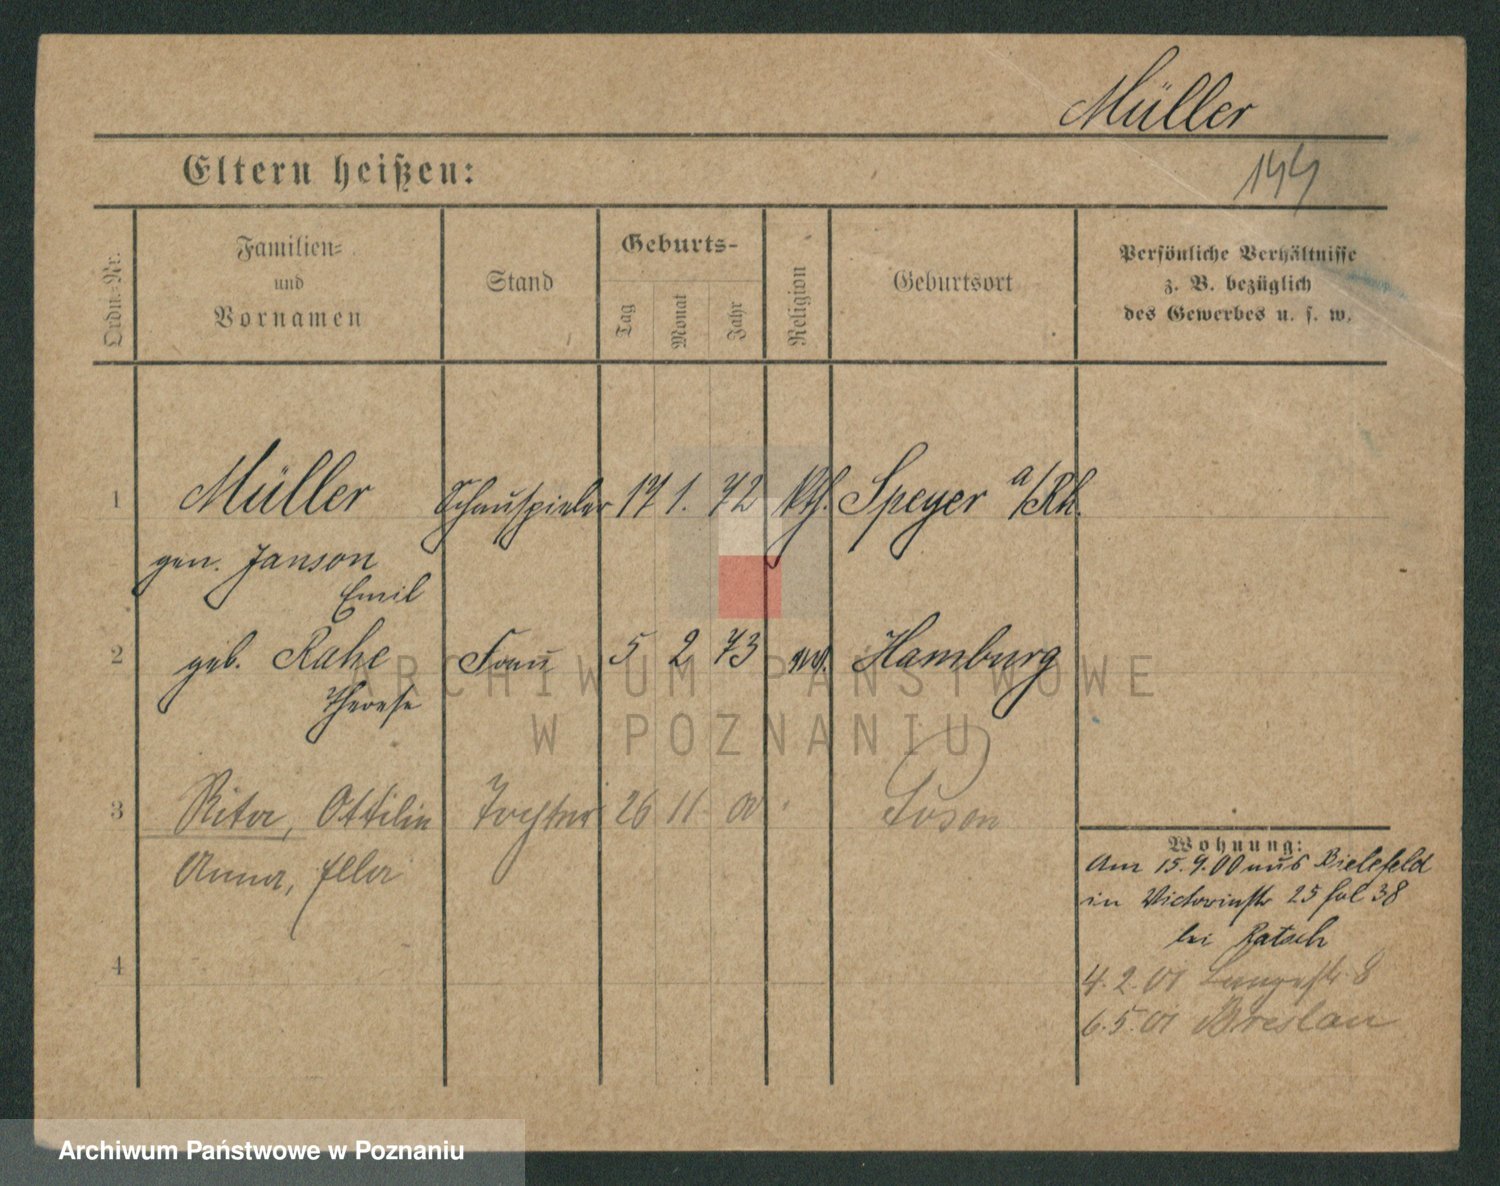 Müller
Eltern heißen:
144
Ordn.-Nr.
Familien-
und
Vornamen
Stand
Geburts-
Tag
Monat
Jahr
Religion
Geburtsort
Persönliche Verhältnisse
z. B. bezüglich
des Gewerbes u. s. w.
1 Müller Schauspieler 17 1. 72 kth. Speyer a/Rh.
gen. Janson
Emil
2 geb. Rahe Frau 5 2 73 ev. Hamburg
Therese
ARCHIWUM PAŃSTWOWE
W POZNANIU
3 Rita, Ottilie Tochter 26 11 00 Posen
Anna, Ella
Wohnung:
Am 15.9.00 aus Bielefeld
in Victoriastr 25 fol 38
bei Ratsch
4
4.2.01 Langestr 8
6.5.01 Breslau
Archiwum Państwowe w Poznaniu